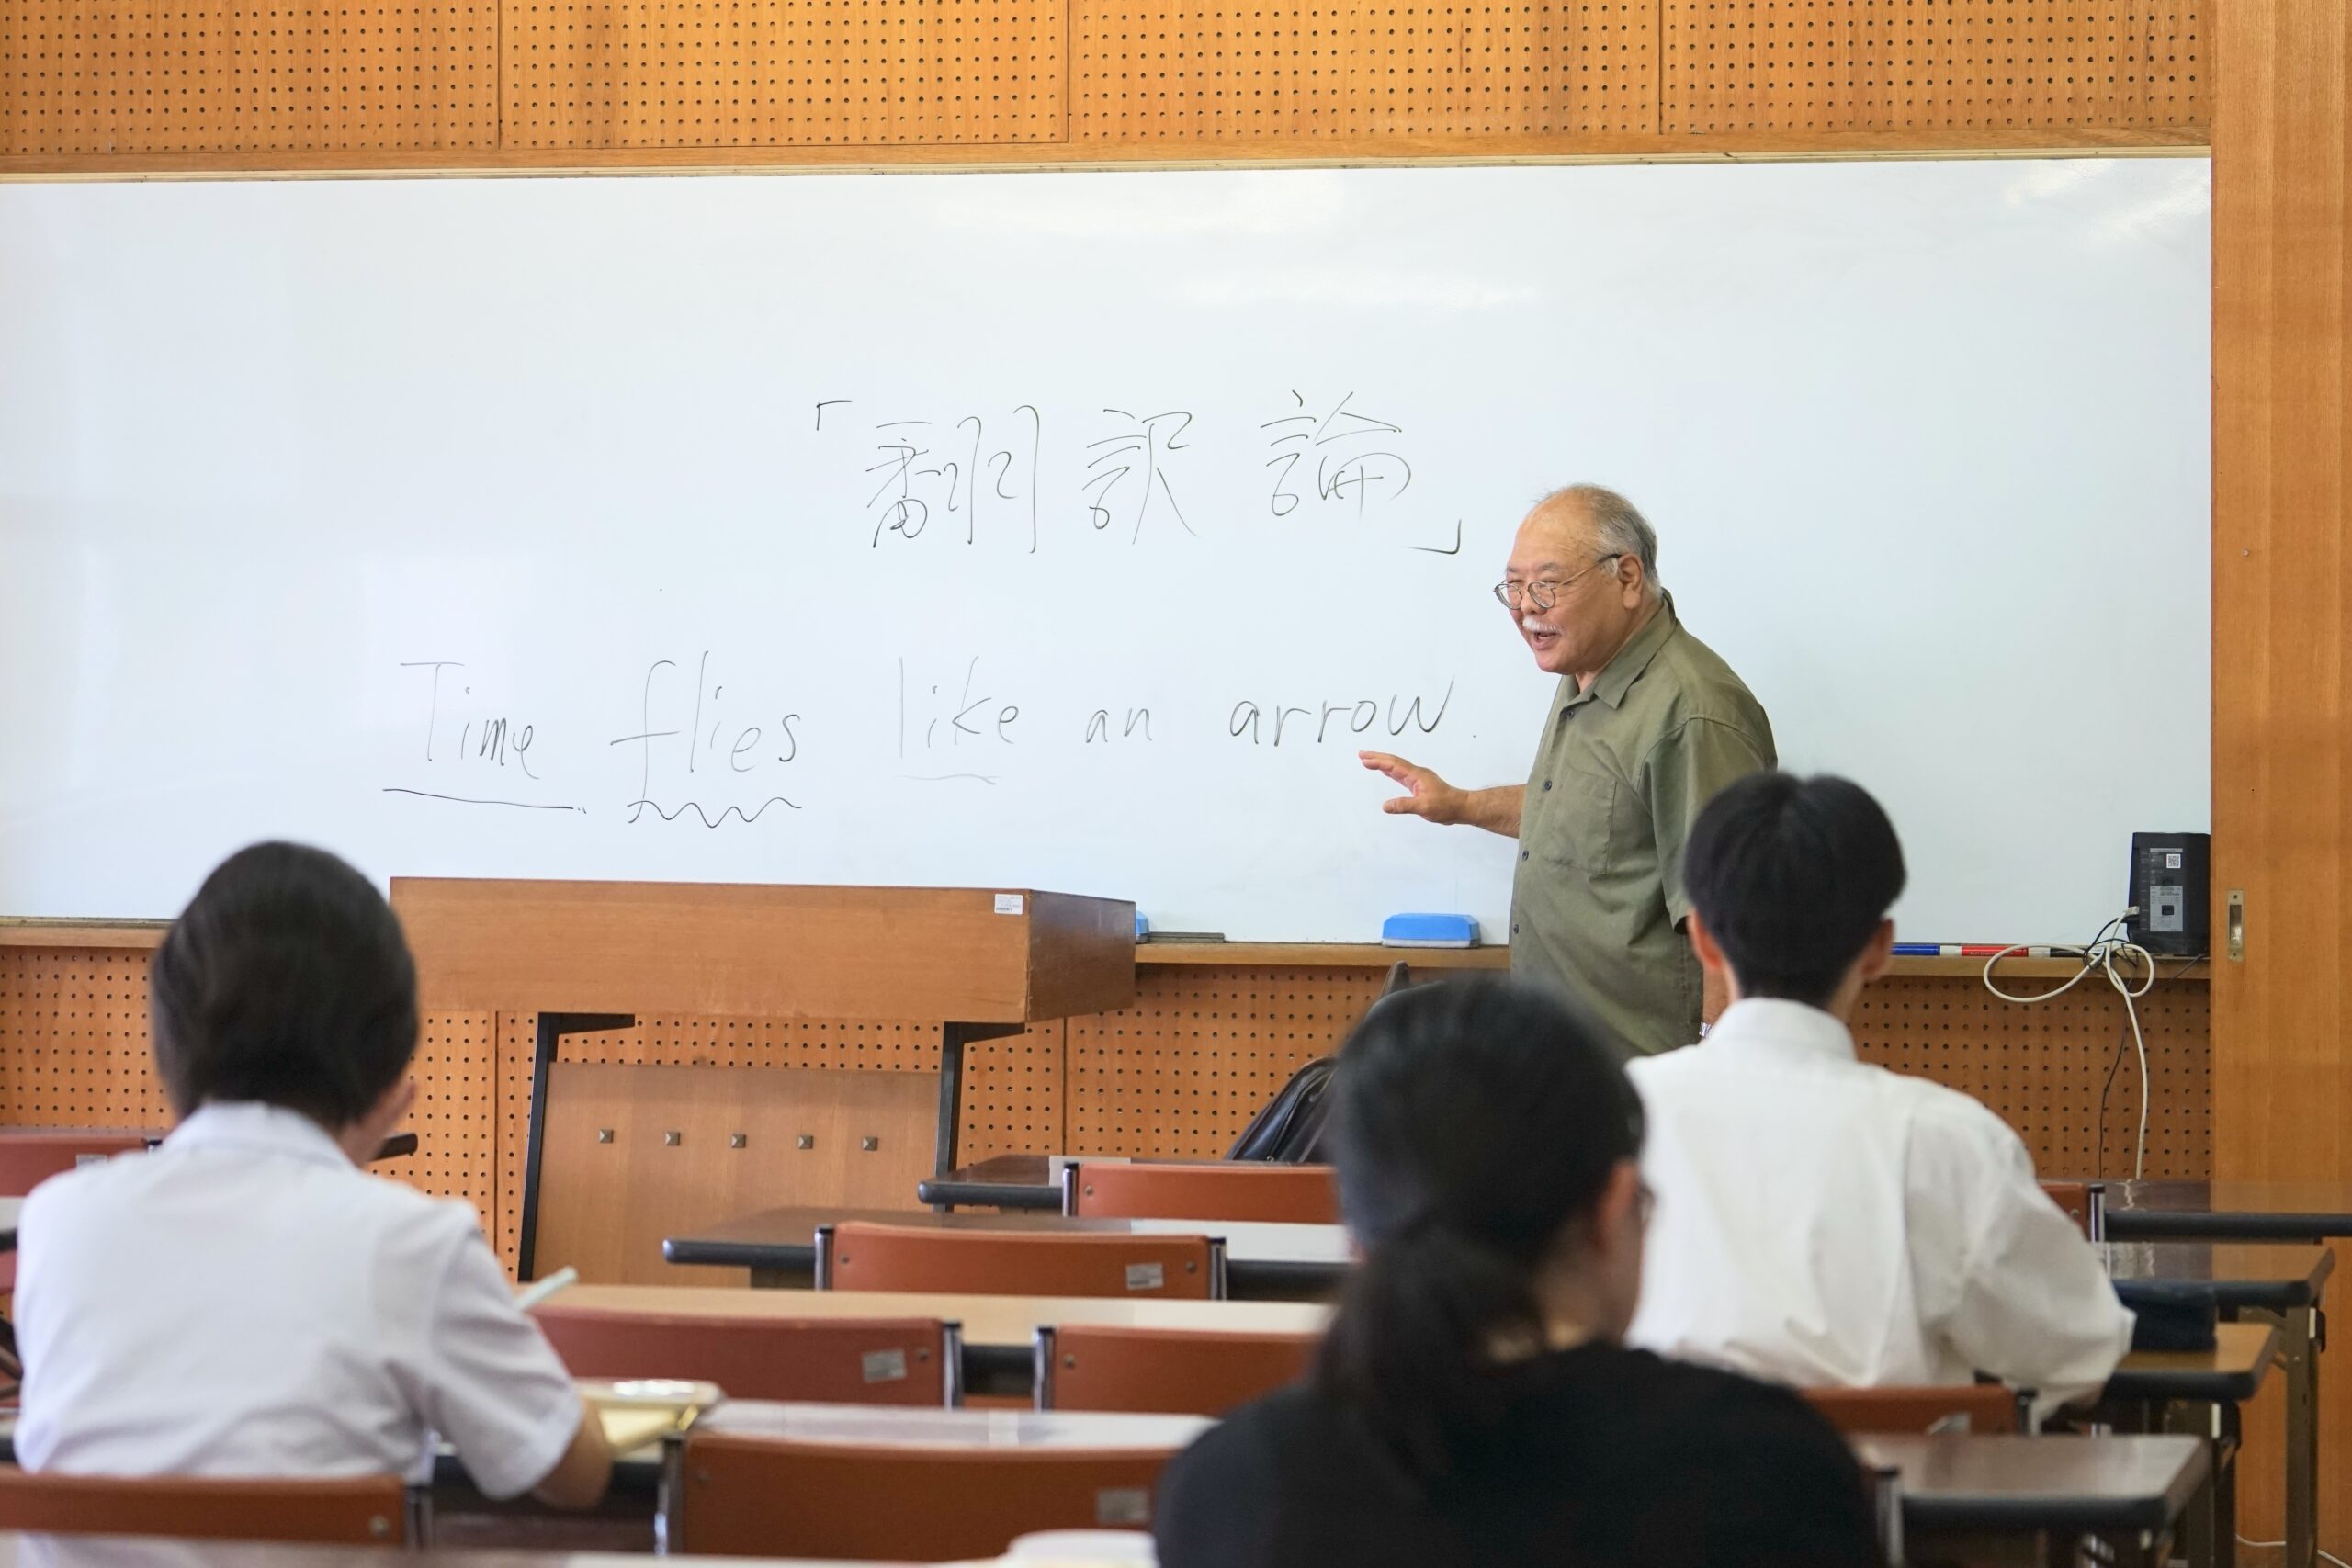 「翻訳論」
Time flies like an arrow.